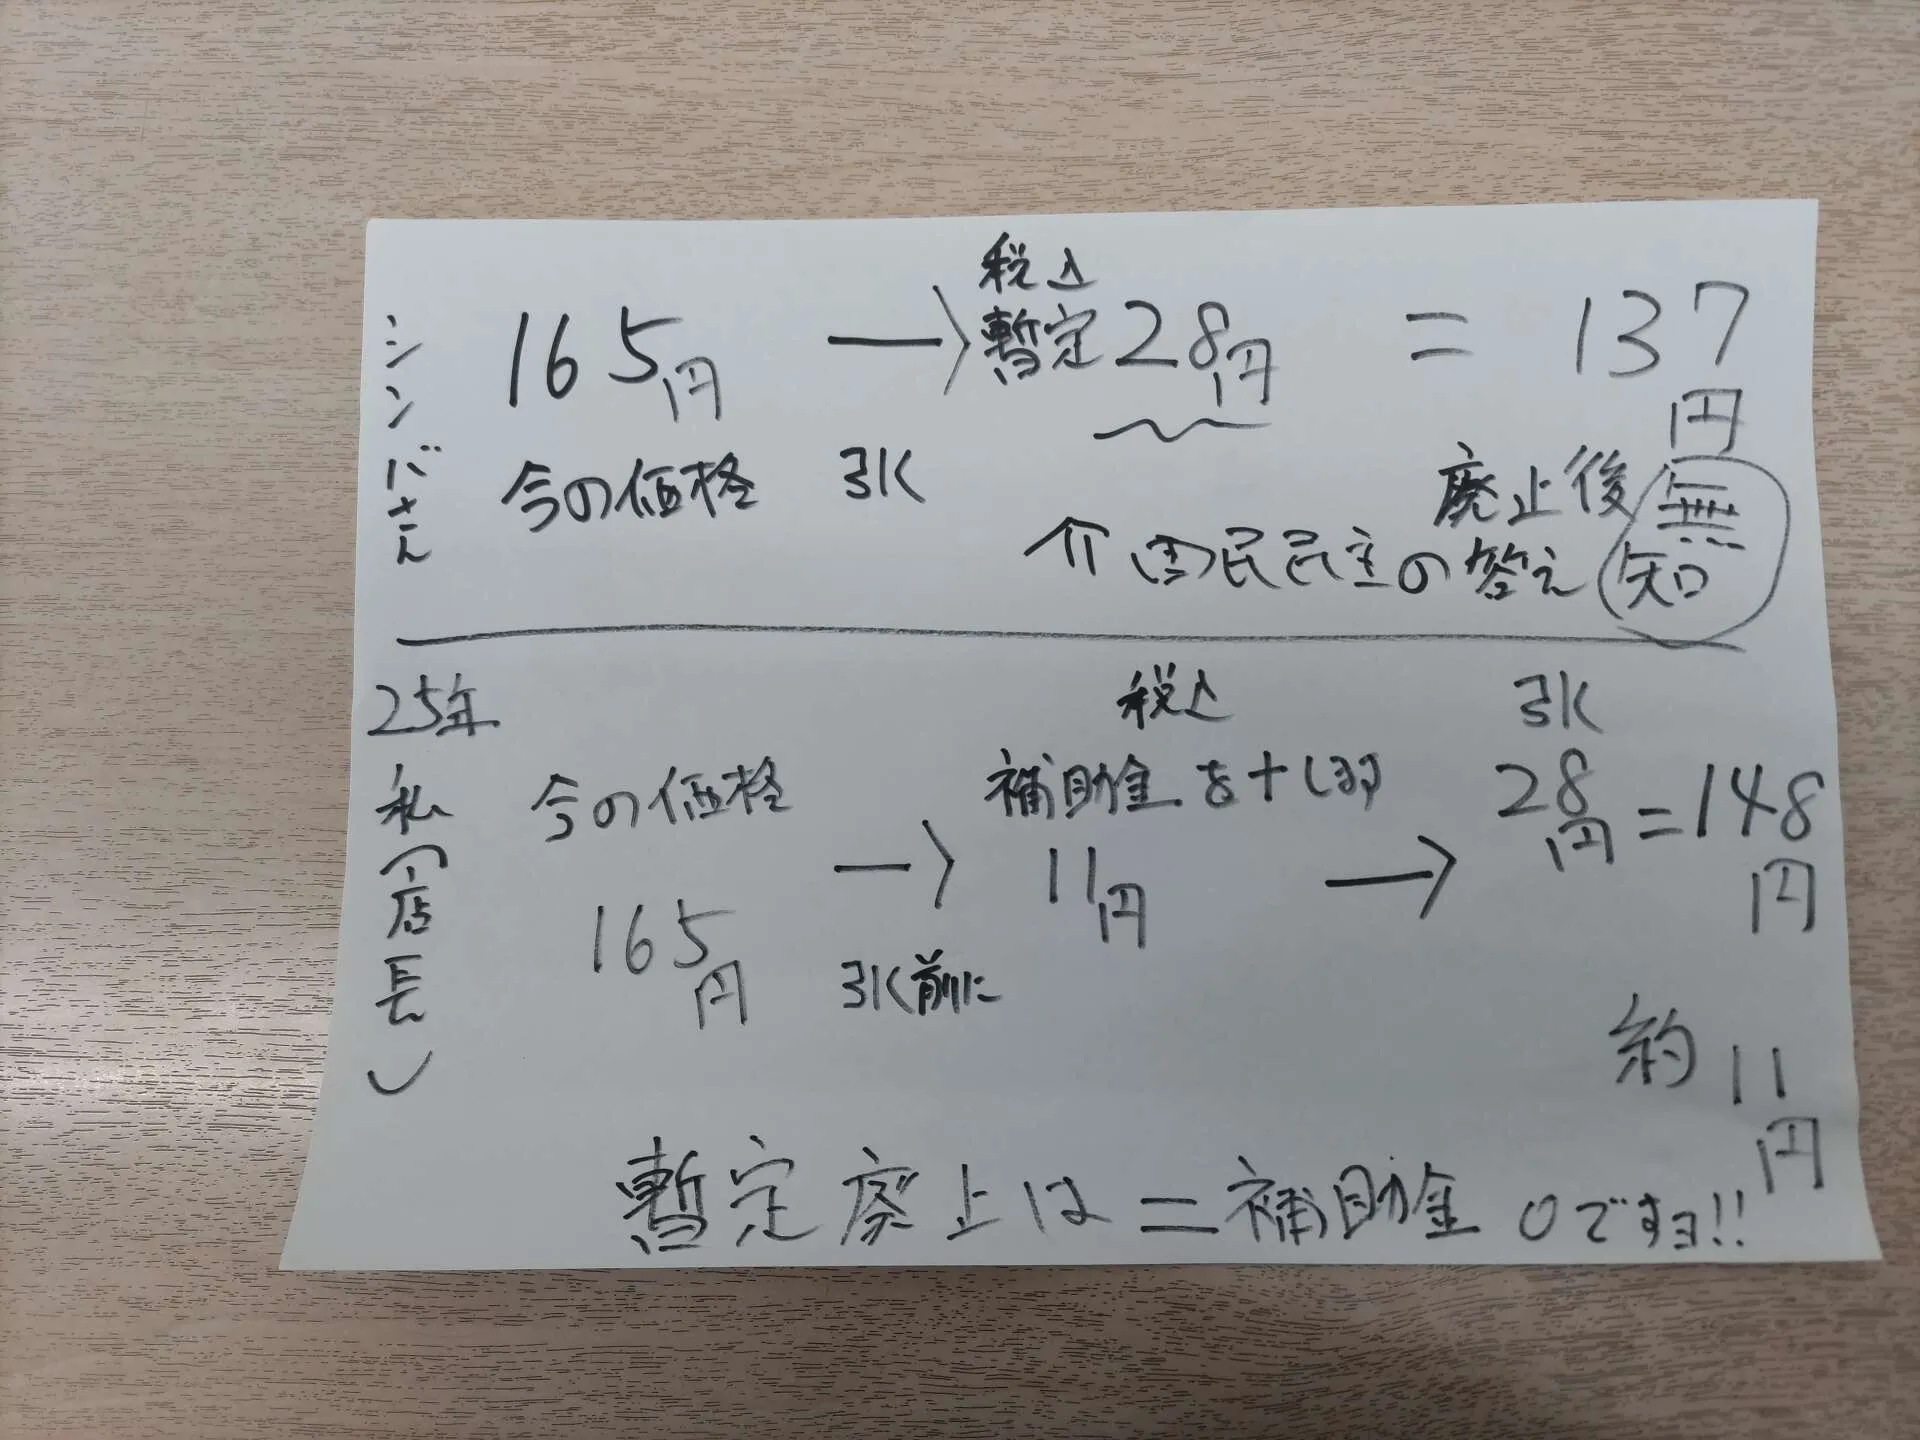 シンバさん
税込
165円 → 暫定28円 = 137円
今の価格 引く
廃止後
介 国民民主の答え 無知
25年
私(店長)
税込 引く
今の価格 補助金を+(る)
165円 → 11円 → 28円=148円
引く前に
約11円
暫定廃止は=補助金0ですヨ!!